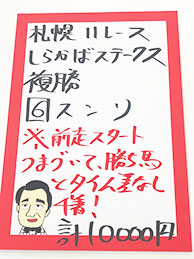 札幌11レース
しらかばステークス
複勝
6スンリ
※前走スタート
つまづいて、勝ち馬
とタイム差なし
1着!
計10000円